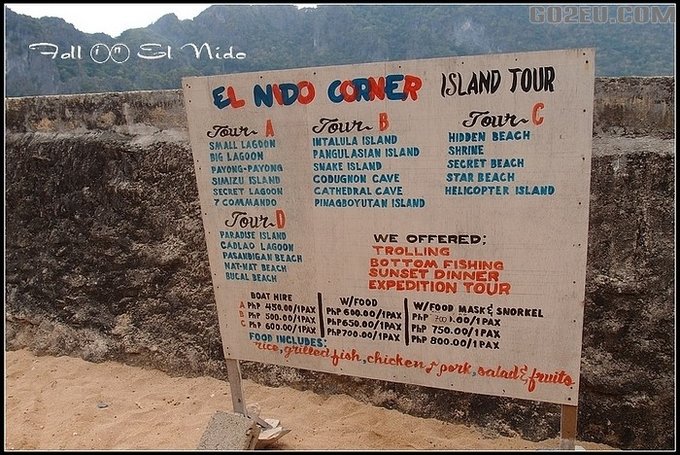 GO2EU.COM
Fall in El Nido
EL NIDO CORNER ISLAND TOUR
Tour A
SMALL LAGOON
BIG LAGOON
PAYONG-PAYONG
SIMIZU ISLAND
SECRET LAGOON
7 COMMANDO
Tour B
INTALULA ISLAND
PANGULASIAN ISLAND
SNAKE ISLAND
CODUGNON CAVE
CATHEDRAL CAVE
PINAGBOYUTAN ISLAND
Tour C
HIDDEN BEACH
SHRINE
SECRET BEACH
STAR BEACH
HELICOPTER ISLAND
Tour D
PARADISE ISLAND
CADLAO LAGOON
PASANDIGAN BEACH
NAT-NAT BEACH
BUCAL BEACH
WE OFFERED:
TROLLING
BOTTOM FISHING
SUNSET DINNER
EXPEDITION TOUR
BOAT HIRE
A PhP 450.00/1PAX
B PhP 500.00/1PAX
C PhP 600.00/1PAX
W/FOOD
PhP 600.00/1PAX
PhP 650.00/1PAX
PhP 700.00/1PAX
W/FOOD MASK & SNORKEL
PhP 700.00/1PAX
PhP 750.00/1PAX
PhP 800.00/1PAX
FOOD INCLUDES:
rice, grilled fish, chicken & pork, salad & fruits